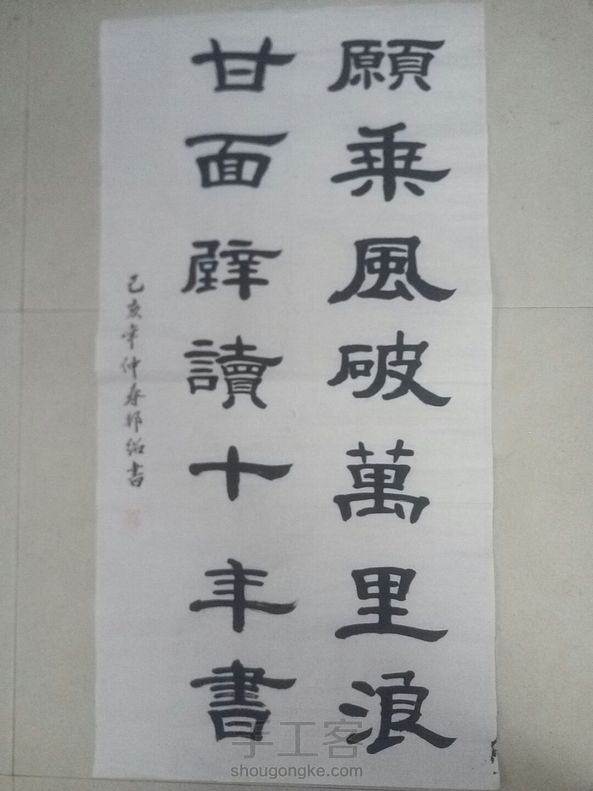 願乗風破萬里浪
甘面壁讀十年書
己亥年仲春邦紹書
手工客
shougongke.com